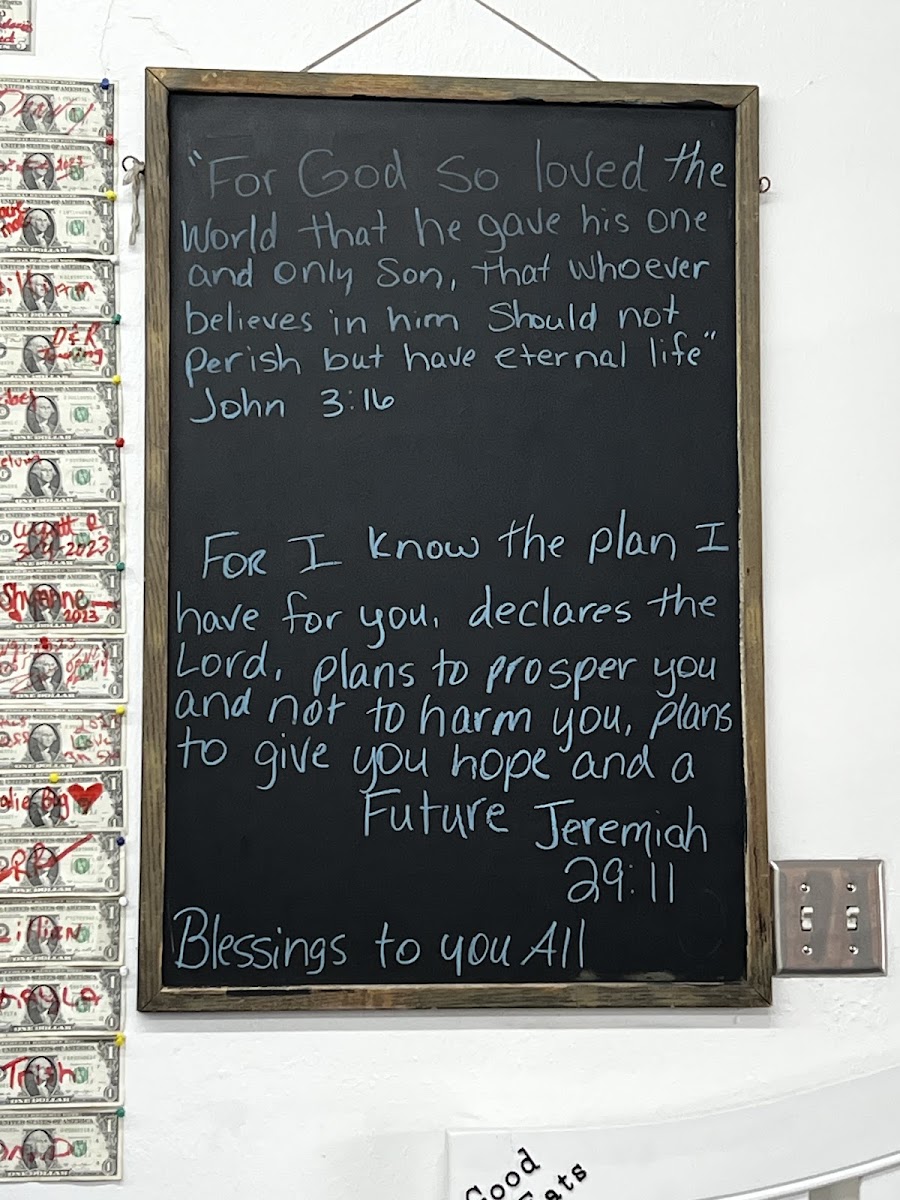 "For God so loved the
World that he gave his one
and only Son, that whoever
believes in him Should not
perish but have eternal life"
John 3:16
For I know the plan I
have for you, declares the
Lord, plans to prosper you
and not to harm you, plans
to give you hope and a
Future Jeremiah
29:11
Blessings to you All
D & R
3-4-2023
Shyanne
2023
Lillian
Trish
ONE DOLLAR
Good
Eats